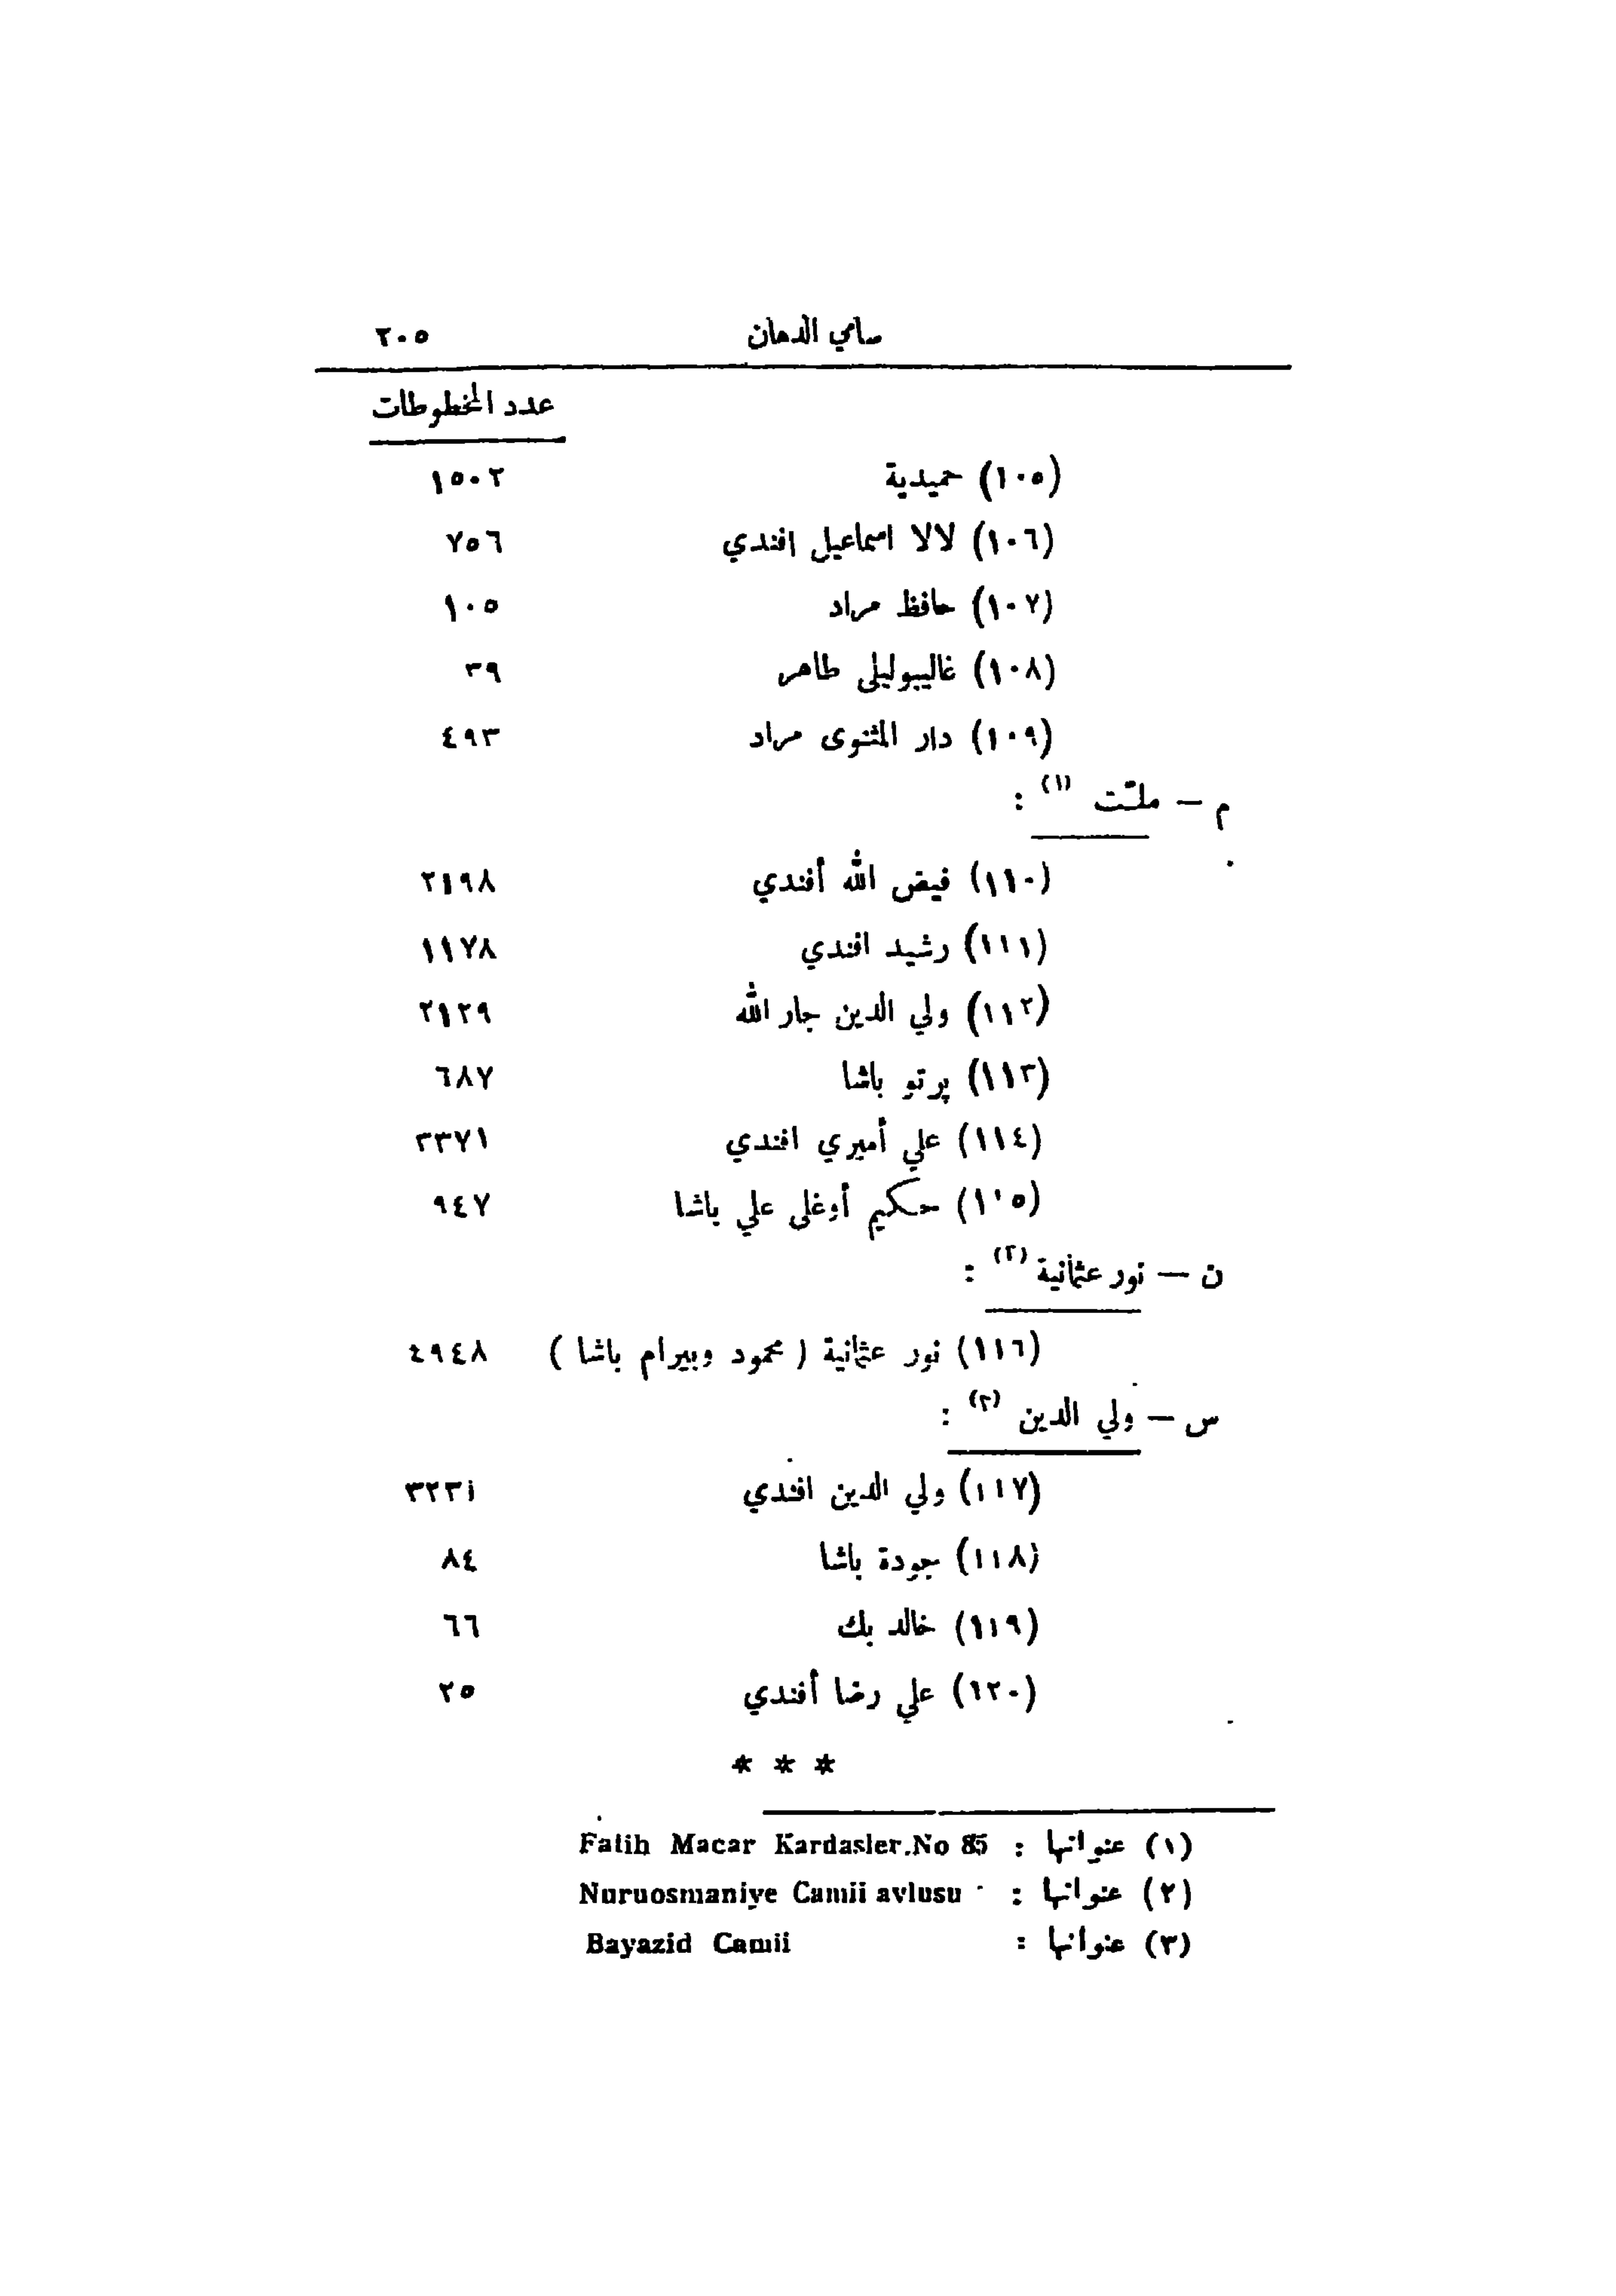 سامي الدهان ٢٠٥
عدد المخطوطات
(١٠٥) حميدية ١٥٠٢
(١٠٦) لالا اسماعيل افندي ٧٥٦
(١٠٧) حافظ مراد ١٠٥
(١٠٨) غاليبوليلى طاهر ٣٩
(١٠٩) دار المثنوى مراد ٤٩٣
م — ملّت (١) :
(١١٠) فيض الله أفندي ٢١٩٨
(١١١) رشيد افندي ١١٧٨
(١١٢) ولي الدين جار الله ٢١٢٩
(١١٣) پرتو باشا ٦٨٧
(١١٤) علي أميري افندي ٣٣٧١
(١١٥) حكيم أوغلى علي باشا ٩٤٧
ن — نور عثمانية (٢) :
(١١٦) نور عثمانية ( محمود وبيرام باشا ) ٤٩٤٨
س — ولي الدين (٣) :
(١١٧) ولي الدين افندي ٣٢٣١
(١١٨) جودة باشا ٨٤
(١١٩) خالد بك ٦٦
(١٢٠) علي رضا أفندي ٢٥
* * *
(١) عنوانها : Fatih Macar Kardasler.No 85
(٢) عنوانها : Nuruosmaniye Camii avlusu
(٣) عنوانها : Bayazid Camii